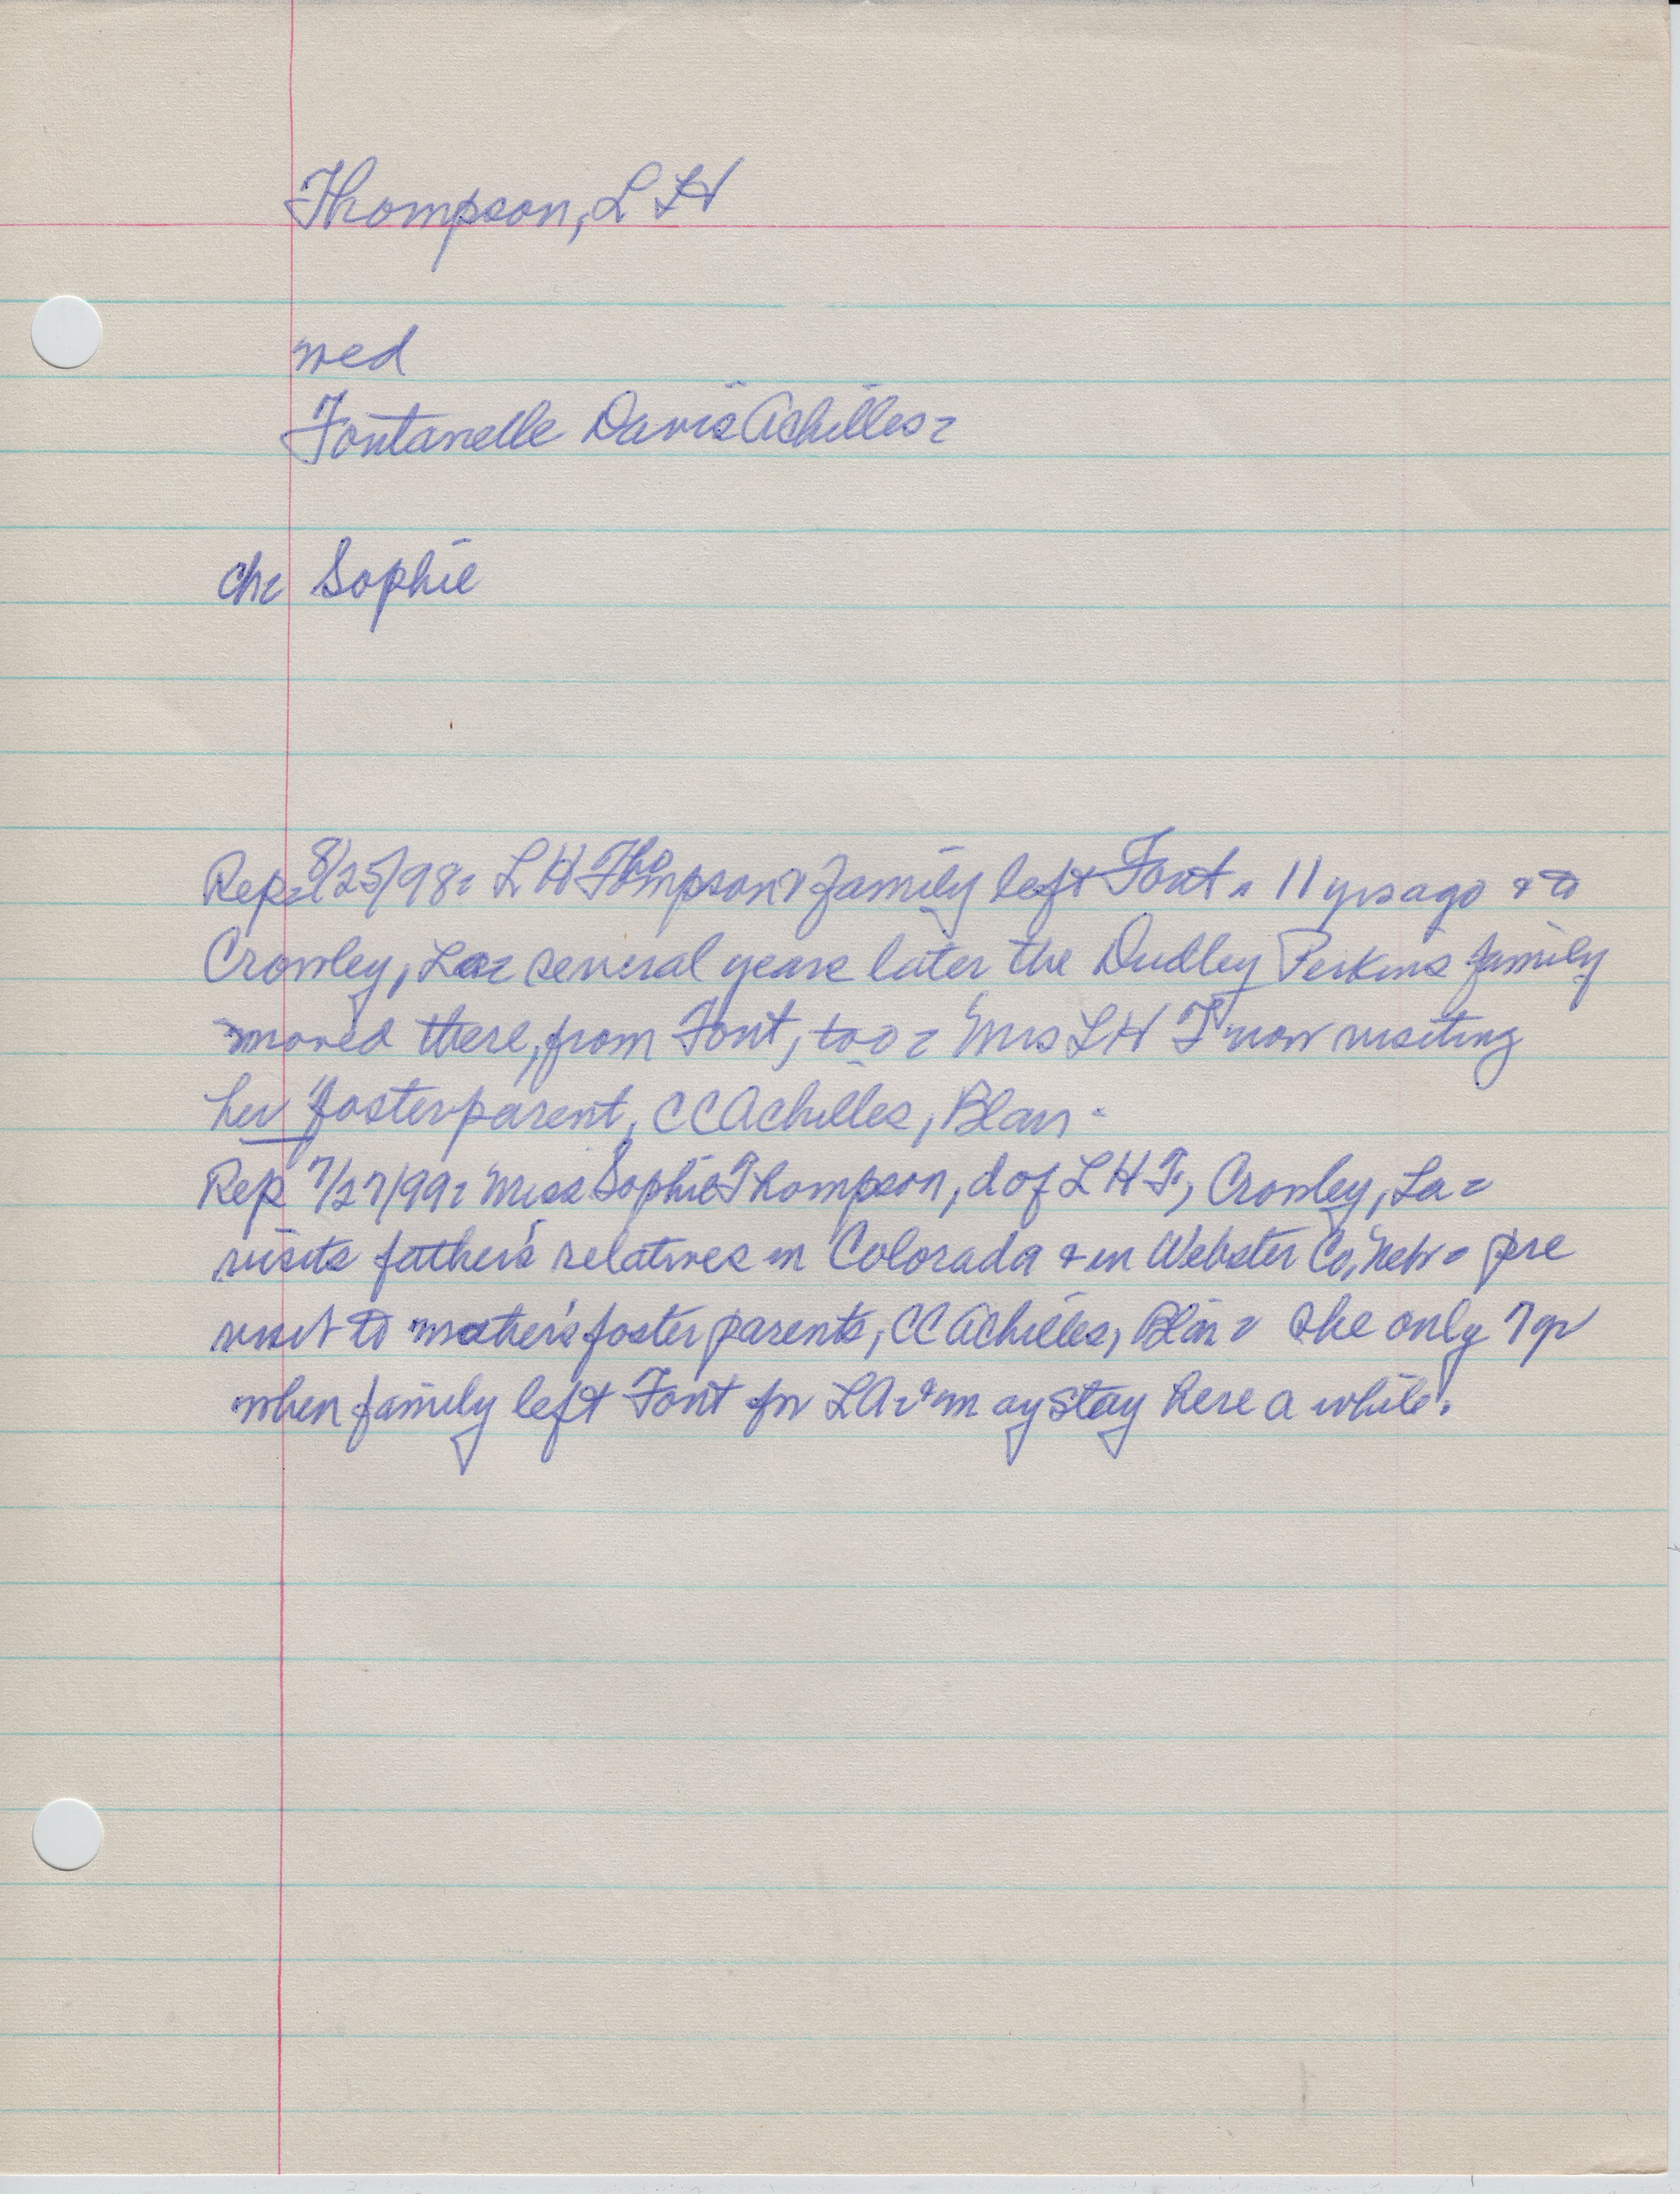 Thompson, L H
wed
Fontanelle Davis Achilles =
ch = Sophie
Rep = 8/25/98 = L H Thompson & family left Font = 11 yrs ago & to
Crowley, La = several years later the Dudley Perkins family
moved there, from Font, too = Mrs L H T now visiting
her foster parent, C C Achilles, Blair -
Rep 7/27/99 = Miss Sophie Thompson, d of L H T, Crowley, La =
visits father's relatives in Colorada & in Webster Co, Neb = pre
visit to mother's foster parents, C C Achilles, Blair = She only 7 yr
when family left Font for LA = & may stay here a while.